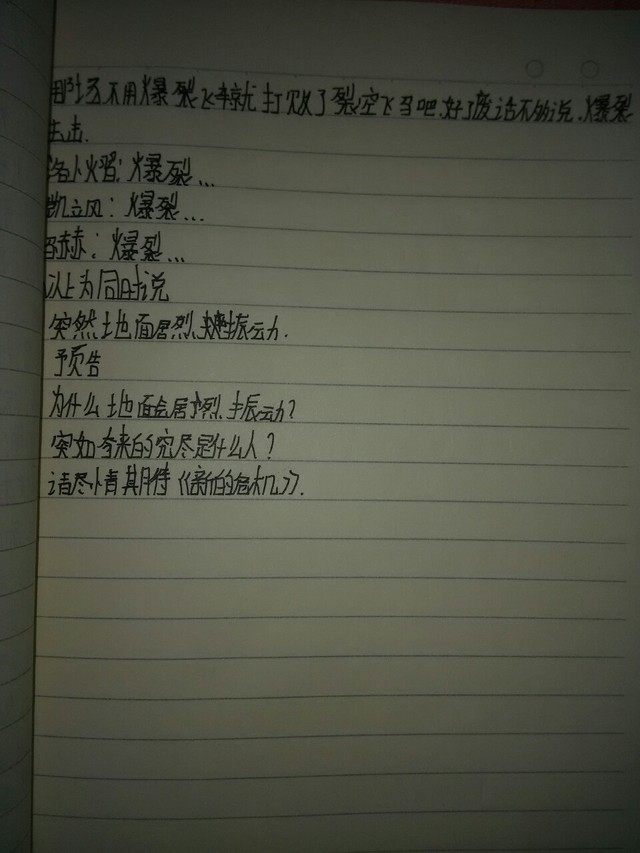 那场不用爆裂飞车就打败了裂空飞马吧.好了废话不多说.爆裂
出击.
洛小熠:爆裂...
凯立风:爆裂...
百赤赫:爆裂...
以上为同时说
突然地面居烈.振动.
予页告
为什么地面会居烈.振动?
突如其来的究尽是什么人?
请尽情其月待《新的危机》.